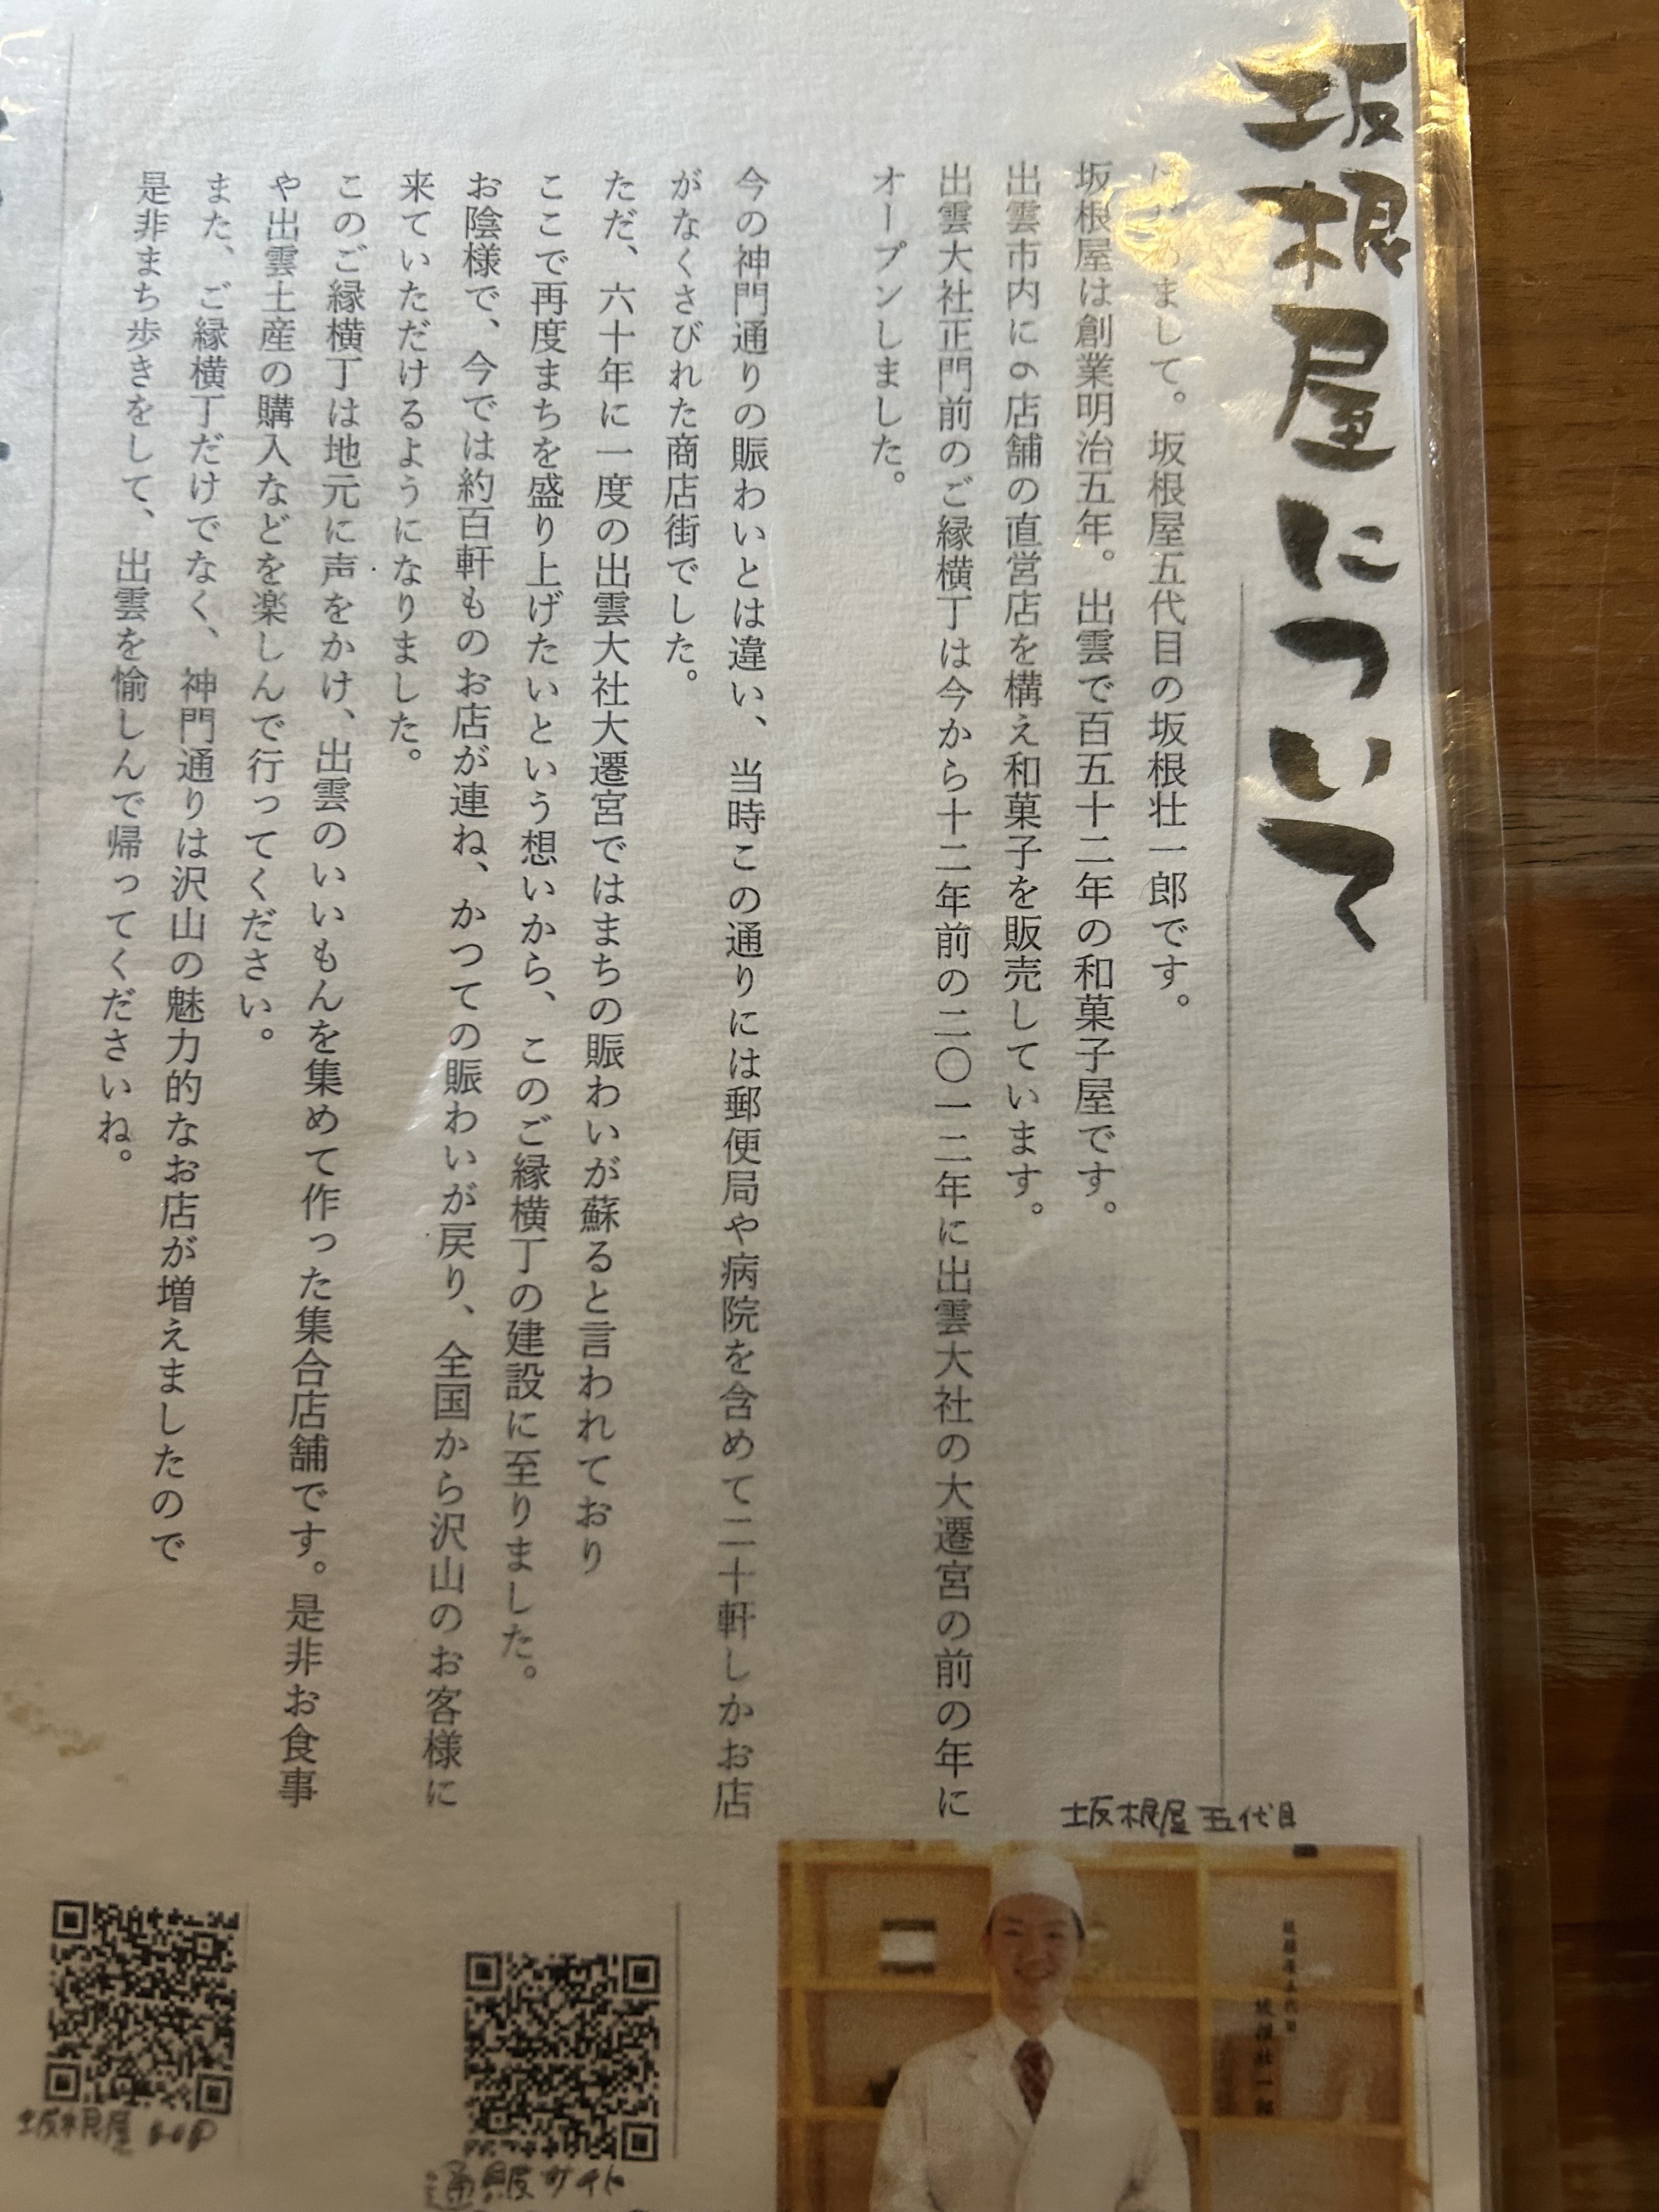 坂根屋について
はじめまして。坂根屋五代目の坂根壮一郎です。
坂根屋は創業明治五年。出雲で百五十二年の和菓子屋です。
出雲市内に6店舗の直営店を構え和菓子を販売しています。
出雲大社正門前のご縁横丁は今から十二年前の二〇一二年に出雲大社の大遷宮の前の年に
オープンしました。
今の神門通りの賑わいとは違い、当時この通りには郵便局や病院を含めて二十軒しかお店
がなくさびれた商店街でした。
ただ、六十年に一度の出雲大社大遷宮ではまちの賑わいが蘇ると言われており
ここで再度まちを盛り上げたいという想いから、このご縁横丁の建設に至りました。
お陰様で、今では約百軒ものお店が連ね、かつての賑わいが戻り、全国から沢山のお客様に
来ていただけるようになりました。
このご縁横丁は地元に声をかけ、出雲のいいもんを集めて作った集合店舗です。是非お食事
や出雲土産の購入などを楽しんで行ってください。
また、ご縁横丁だけでなく、神門通りは沢山の魅力的なお店が増えましたので
是非まち歩きをして、出雲を愉しんで帰ってくださいね。
坂根屋 五代目
坂根屋五代目
坂根壮一郎
通販サイト
坂根屋 HP